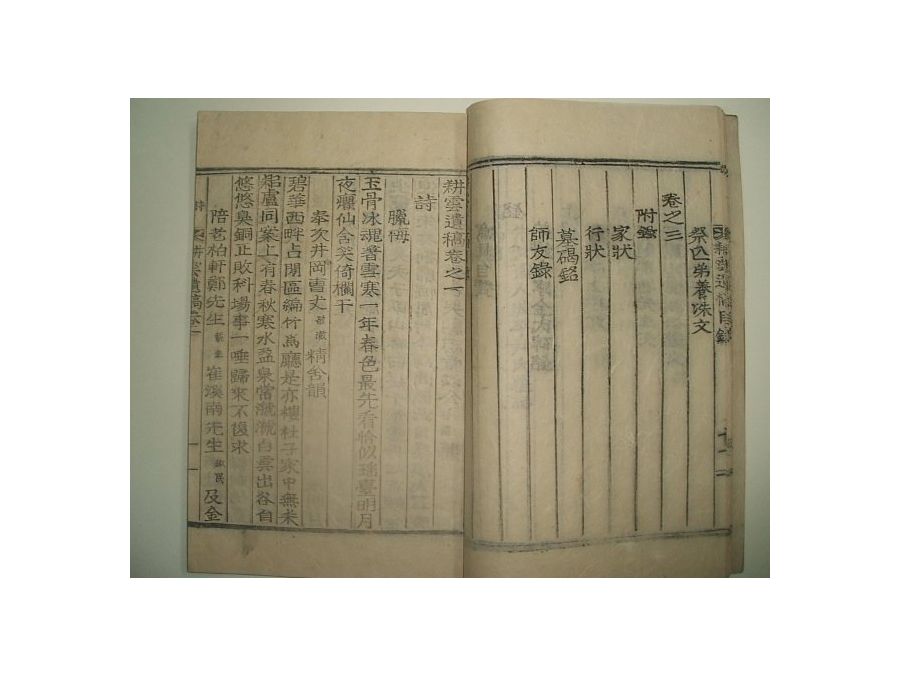 耕雲遺稿目錄
祭亡弟養洙文
卷之三
附錄
家狀
行狀
墓碣銘
師友錄
耕雲遺稿卷之一
詩
臘梅
玉骨冰魂着雪寒一年春色最先看恰似瑤臺明月
夜癯仙含笑倚欄干
奉次井岡曺丈 精舍韻
碧華西畔占閒區編竹爲廳是亦樓杜子家中無米
盧同案上有春秋寒水益泉常㶁㶁白雲出谷自
悠悠臭銅正敗科場事一唾歸來不復求
陪老柏軒鄭先生 載圭 崔溪南先生 琡民 及金
詩
耕雲遺稿卷一
一